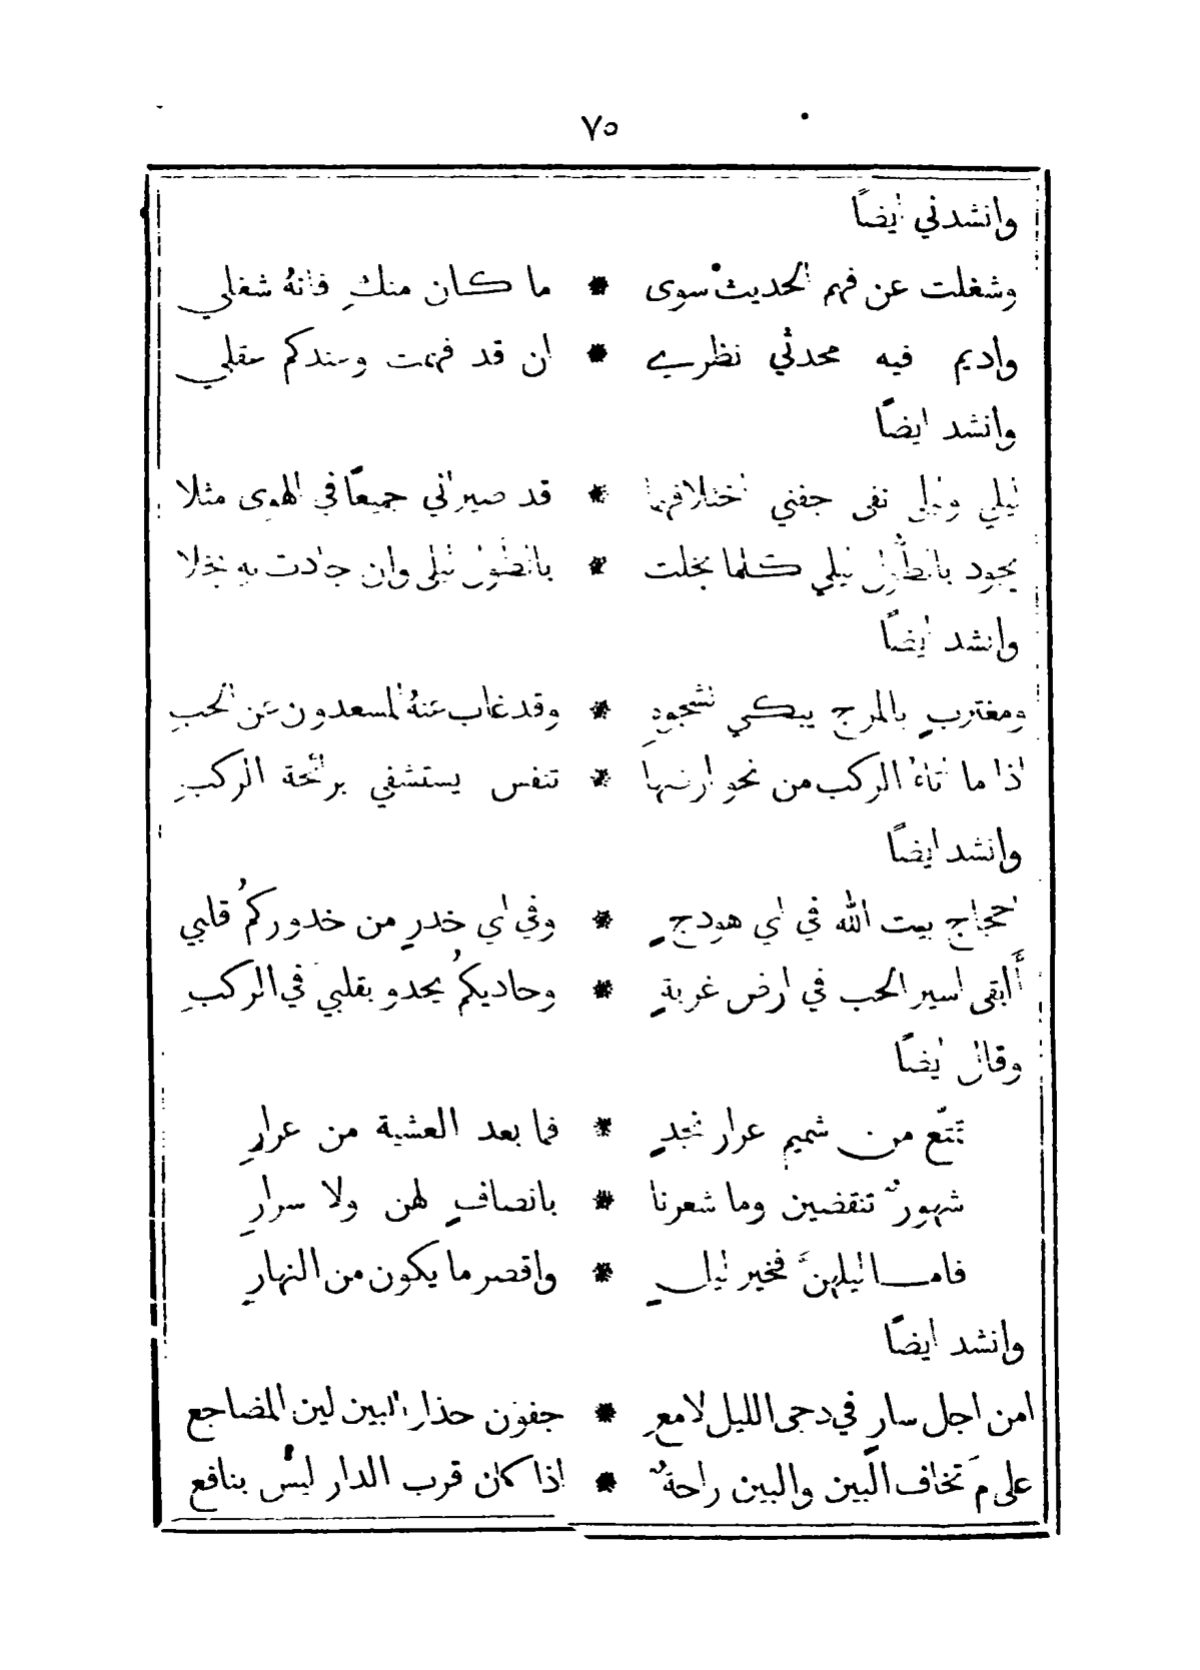 ٧٥
وانشدني ايضاً
وشغلت عن فهم الحديث سوى * ما كان منكِ فانهُ شغلي
واديم فيه محدثي نظري * ان قد فهمت وعندكم عقلي
وانشد ايضاً
ليلي وليلى نفى جفني اختلافهما * قد صيراني جميعاً في الهوى مثلا
يجود بالطول ليلي كلما بخلت * بالطول ليلى وان جادت به بخلا
وانشد ايضاً
ومغتربٍ بالمرج يبكي لشجوهِ * وقد غاب عنهُ المسعدون عن الحبِ
اذا ما اتاهُ الركب من نحو ارضها * تنفس يستشفي برائحة الركبِ
وانشد ايضاً
احجاج بيت الله في اي هودجٍ * وفي اي خدرٍ من خدوركمُ قلبي
أابقى اسير الحب في ارض غربةٍ * وحاديكمُ يحدو بقلبيَ في الركبِ
وقال ايضاً
تمتّع من شميم عرار نجدٍ * فما بعد العشية من عرارِ
شهورٌ تنقضين وما شعرنا * بانصافٍ لهن ولا سرارِ
فامـا ليلهنَّ فخير ليلٍ * واقصر ما يكون من النهارِ
وانشد ايضاً
امن اجل سارٍ في دجى الليل لامعِ * جفون حذار البين لين المضاجع
على مَ تخاف البين والبين راحةٌ * اذا كان قرب الدار ليس بنافع